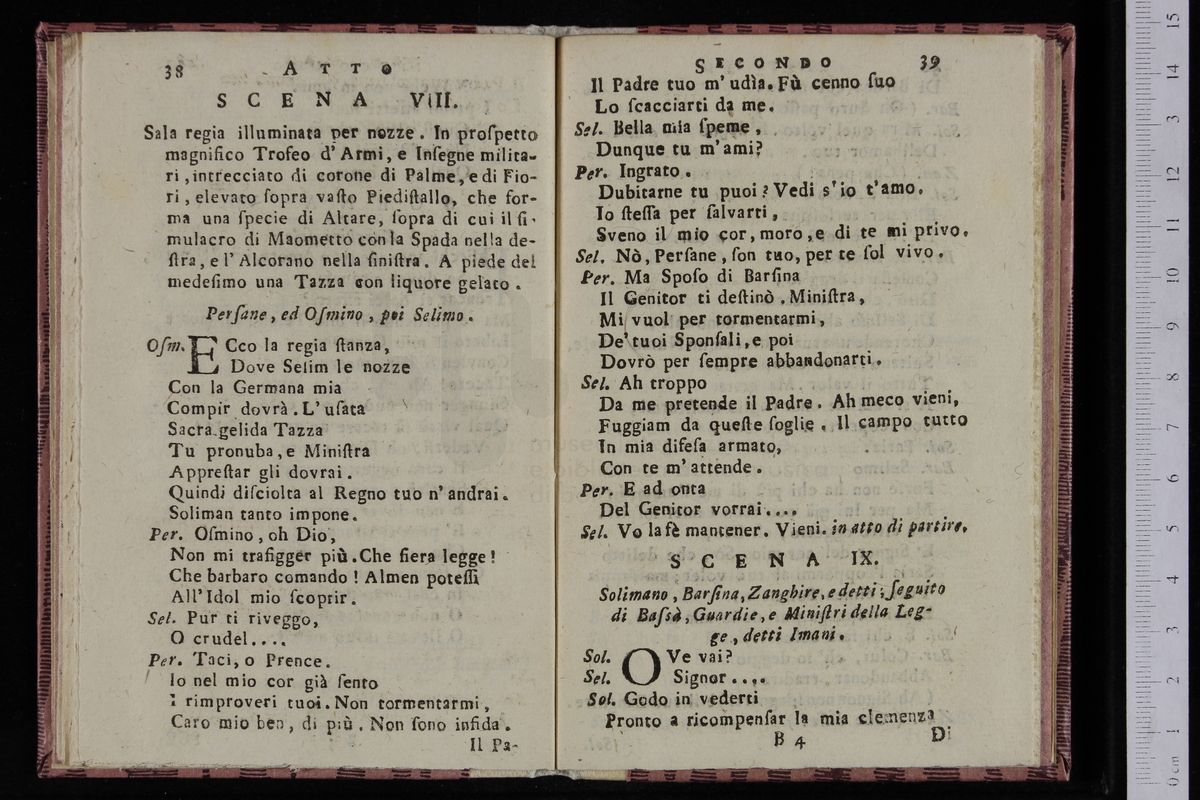 38 ATTO
SCENA VIII.
Sala regia illuminata per nozze. In proſpetto
magnifico Trofeo d'Armi, e Inſegne milita-
ri, intrecciato di corone di Palme, e di Fio-
ri, elevato ſopra vaſto Piediſtallo, che for-
ma una ſpecie di Altare, ſopra di cui il ſi-
mulacro di Maometto con la Spada nella de-
ſtra, e l'Alcorano nella ſiniſtra. A piede del
medeſimo una Tazza con liquore gelato.
Perſane, ed Oſmino, poi Selimo.
Oſm. ECco la regia ſtanza,
Dove Selim le nozze
Con la Germana mia
Compir dovrà. L'uſata
Sacra gelida Tazza
Tu pronuba, e Miniſtra
Appreſtar gli dovrai.
Quindi diſciolta al Regno tuo n'andrai.
Soliman tanto impone.
Per. Oſmino, oh Dio,
Non mi trafigger più. Che fiera legge!
Che barbaro comando! Almen poteſſi
All'Idol mio ſcoprir.
Sel. Pur ti riveggo,
O crudel....
Per. Taci, o Prence.
Io nel mio cor già ſento
I rimproveri tuoi. Non tormentarmi,
Caro mio ben, di più. Non ſono infida.
Il Pa-
SECONDO 39
Il Padre tuo m'udìa. Fù cenno ſuo
Lo ſcacciarti da me.
Sel. Bella mia ſpeme,
Dunque tu m'ami?
Per. Ingrato.
Dubitarne tu puoi? Vedi s'io t'amo.
Io ſteſſa per ſalvarti,
Sveno il mio cor, moro, e di te mi privo.
Sel. Nò, Perſane, ſon tuo, per te ſol vivo.
Per. Ma Spoſo di Barſina
Il Genitor ti deſtinò. Miniſtra,
Mi vuol per tormentarmi,
De' tuoi Sponſali, e poi
Dovrò per ſempre abbandonarti.
Sel. Ah troppo
Da me pretende il Padre. Ah meco vieni,
Fuggiam da queſte ſoglie. Il campo tutto
In mia difeſa armato,
Con te m'attende.
Per. E ad onta
Del Genitor vorrai....
Sel. Vo la fè mantener. Vieni. in atto di partire.
SCENA IX.
Solimano, Barſina, Zanghire, e detti; ſeguito
di Baſsà, Guardie, e Miniſtri della Leg-
ge, detti Imani.
Sol. OVe vai?
Sel. Signor....
Sol. Godo in vederti
Pronto a ricompenſar la mia clemenza
B 4 Di